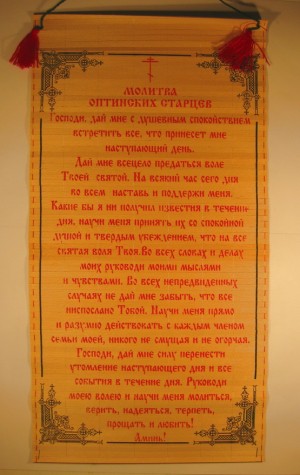 Молитва
оптинских старцев
Господи, дай мне с душевным спокойствием
встретить все, что принесет мне
наступающий день.
Дай мне всецело предаться воле
Твоей святой. На всякий час сего дня
во всем наставь и поддержи меня.
Какие бы я ни получил известия в течении
дня, научи меня принять их со спокойной
душой и твердым убеждением, что на все
святая воля Твоя. Во всех словах и делах
моих руководи моими мыслями
и чувствами. Во всех непредвиденных
случаях не дай мне забыть, что все
ниспослано Тобой. Научи меня прямо
и разумно действовать с каждым членом
семьи моей, никого не смущая и не огорчая.
Господи, дай мне силу перенести
утомление наступающего дня и все
события в течение дня. Руководи
моею волею и научи меня молиться,
верить, надеяться, терпеть,
прощать и любить!
Аминь!